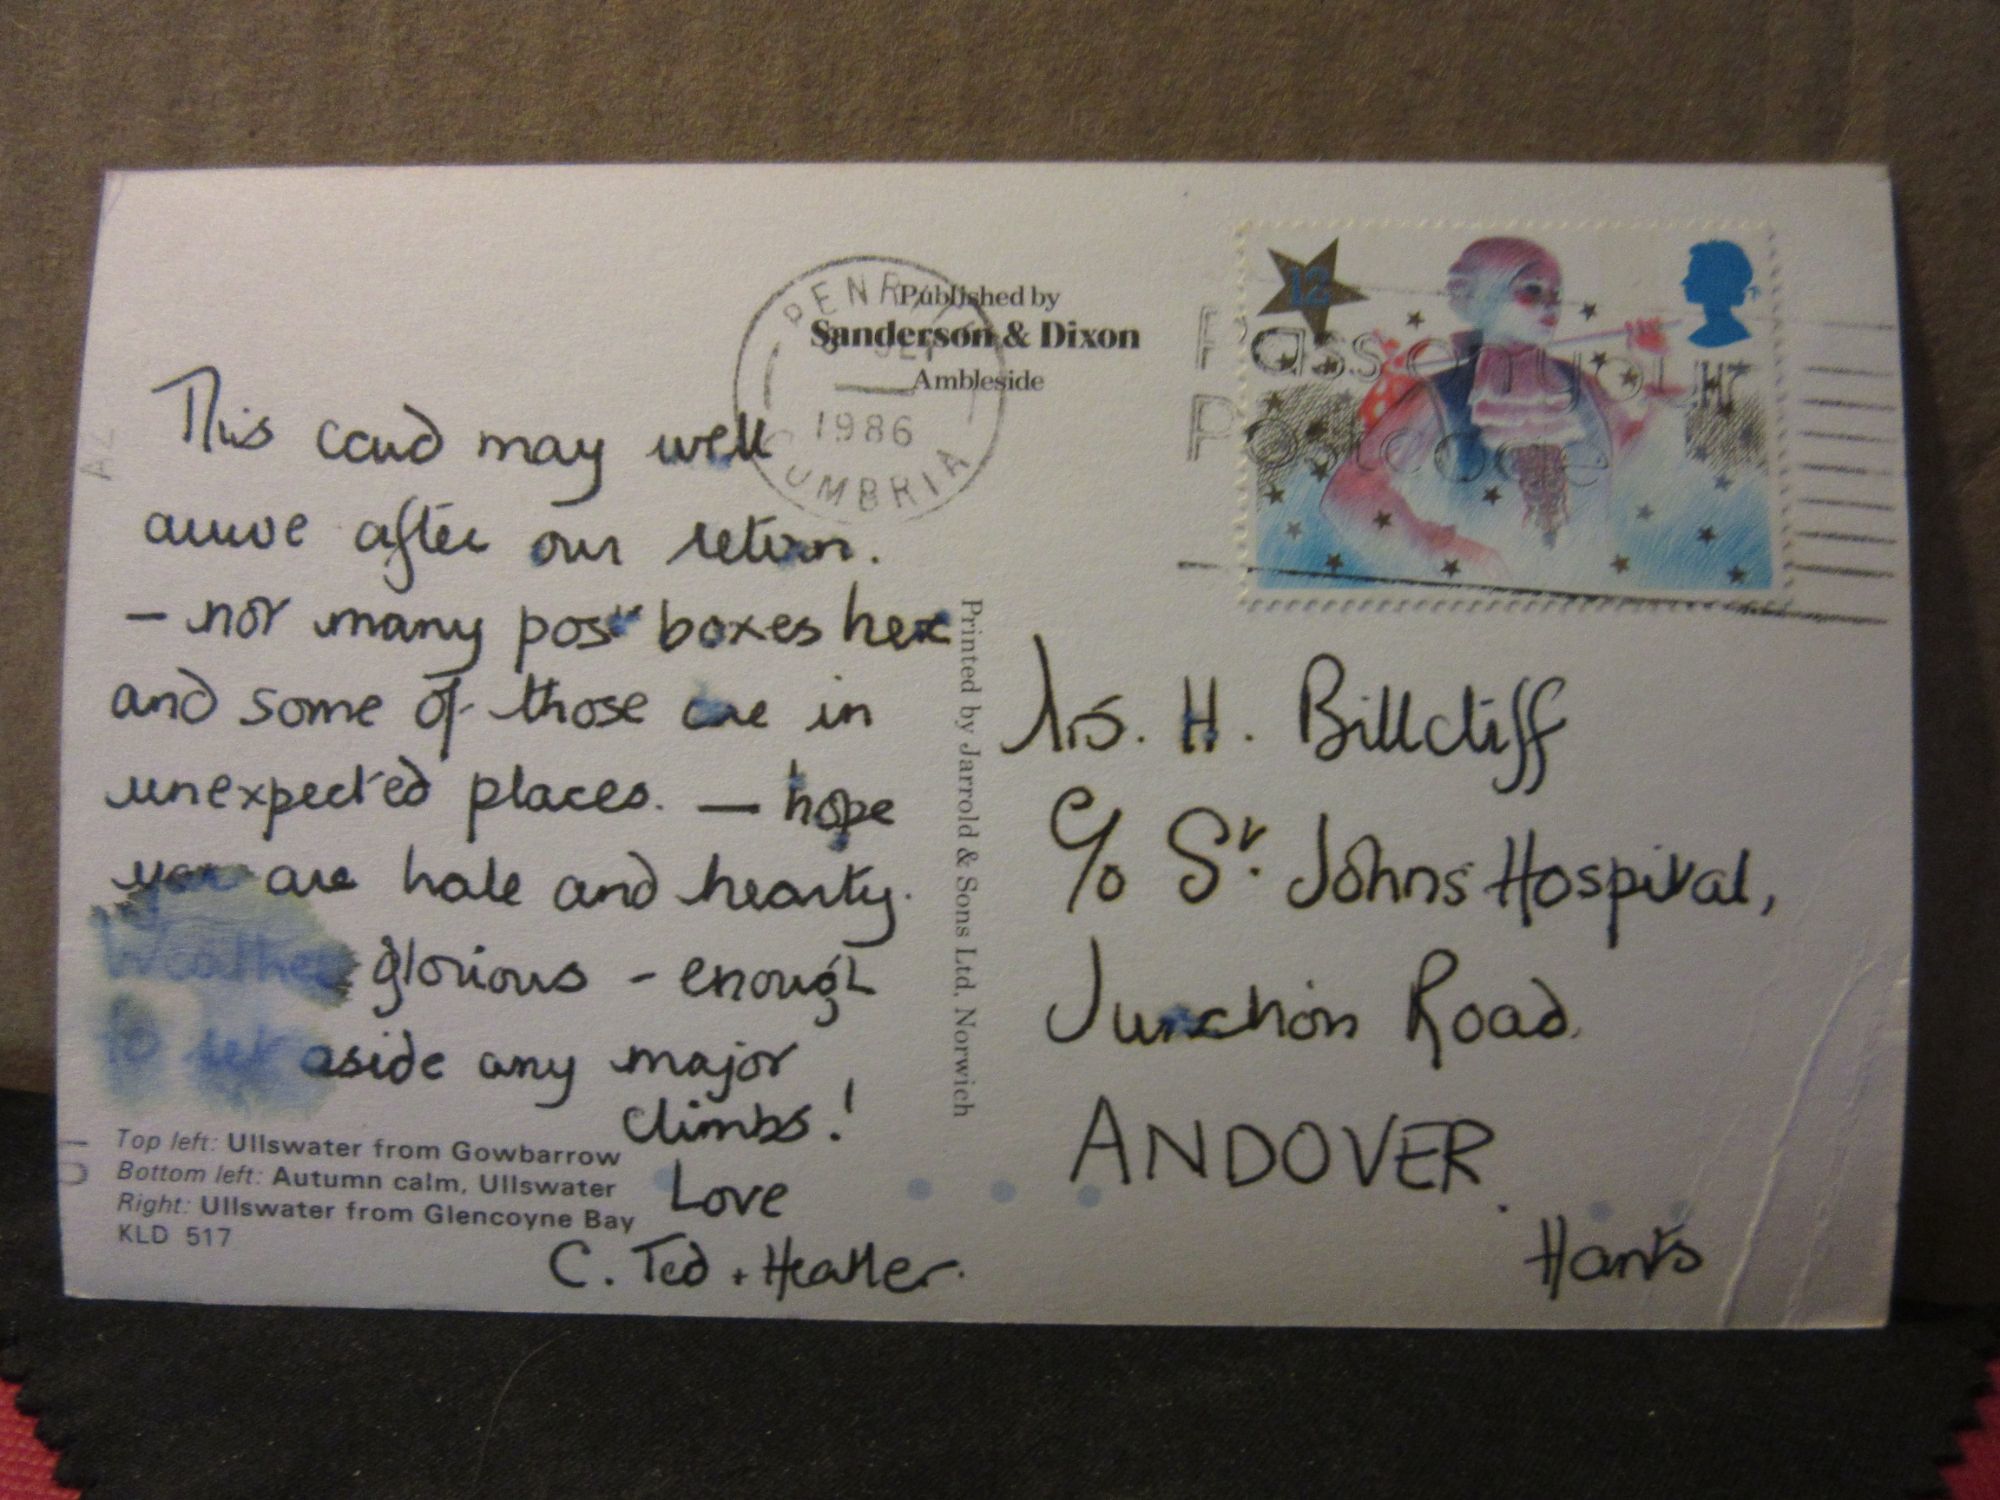 This card may well
arrive after our return.
– not many post boxes here
and some of those are in
unexpected places. – hope
you are hale and hearty.
Weather glorious – enough
to set aside any major
climbs!
Love
C. Ted + Heather.
Top left: Ullswater from Gowbarrow
Bottom left: Autumn calm, Ullswater
Right: Ullswater from Glencoyne Bay
KLD 517
Published by
Sanderson & Dixon
Ambleside
Printed by Jarrold & Sons Ltd, Norwich
1986
CUMBRIA
12
Pass on your
Postcode
Mrs. H. Billcliff
C/o St. Johns Hospital,
Junction Road
ANDOVER.
Hants